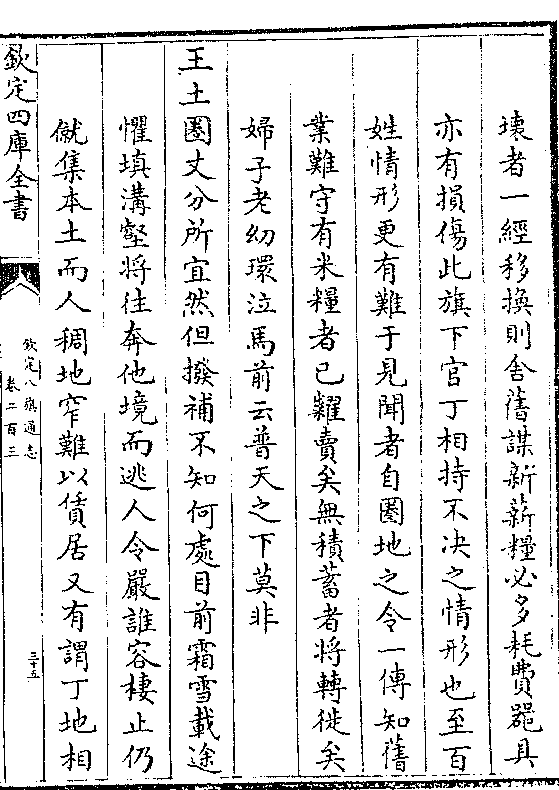 壊者一經移換則舍舊謀新薪糧必多耗費噐具
亦有損傷此旗下官丁相持不决之情形也至百
姓情形更有難于見聞者自圏地之令一傳知舊
業難守有米糧者已糶賣矣無積蓄者將轉徙矣
婦子老幼環泣馬前云普天之下莫非
王土圏丈分所宜然但撥補不知何處目前霜雪載途
懼填溝壑將往奔他境而逃人令嚴誰容棲止仍
僦集本土而人稠地窄難以賃居又有謂丁地相
欽定四庫全書
欽定八旗通志
卷二百三
三十五